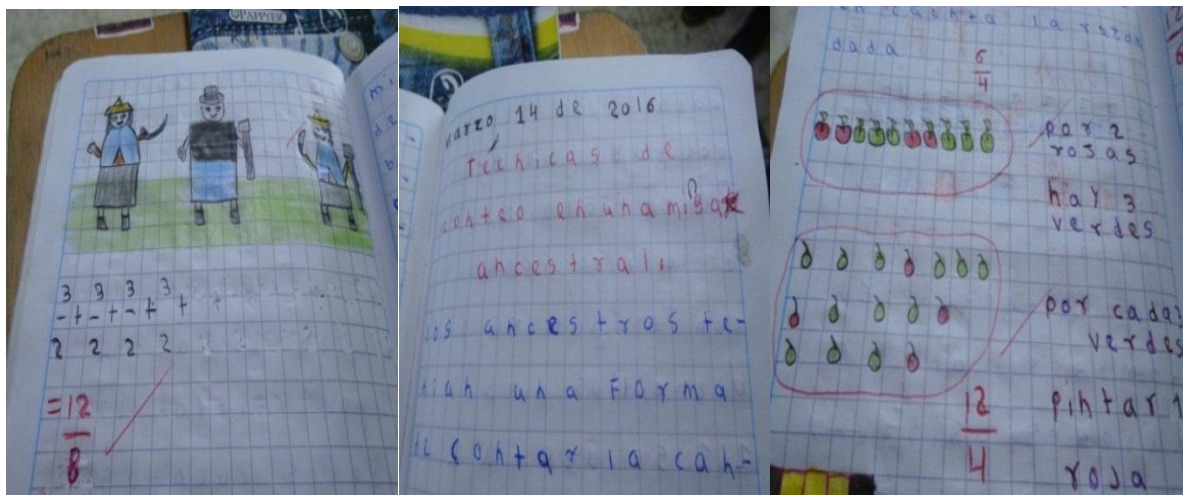 PAPPYER
3 3 3 3
- + - + - + - +
2 2 2 2
= 12
8
marzo 14 de 2016
Técnicas de
conteo en una miga
ancestral.
los ancestros te-
nian una Forma
de contar la can-
en cuenta la razon
dada
6
4
por 2
rosas
hay 3
verdes
por cada 3
verdes
12
4
pintar 1
rosa